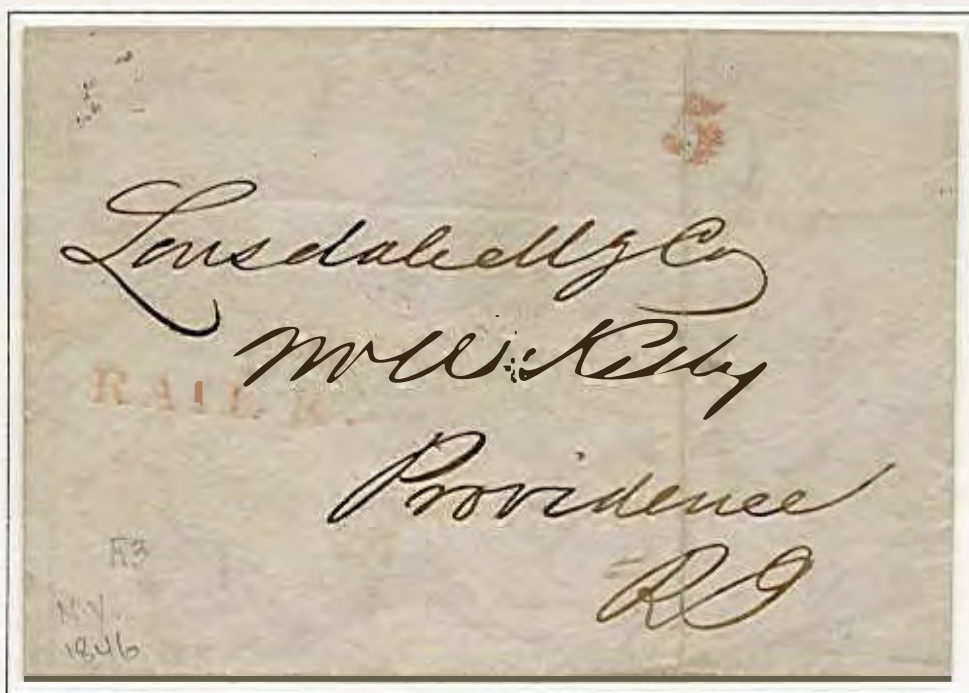 5
Lonsdale Mfg Co
Wm W. Kelly
RAIL R.
Providence
RI
N.Y.
1846